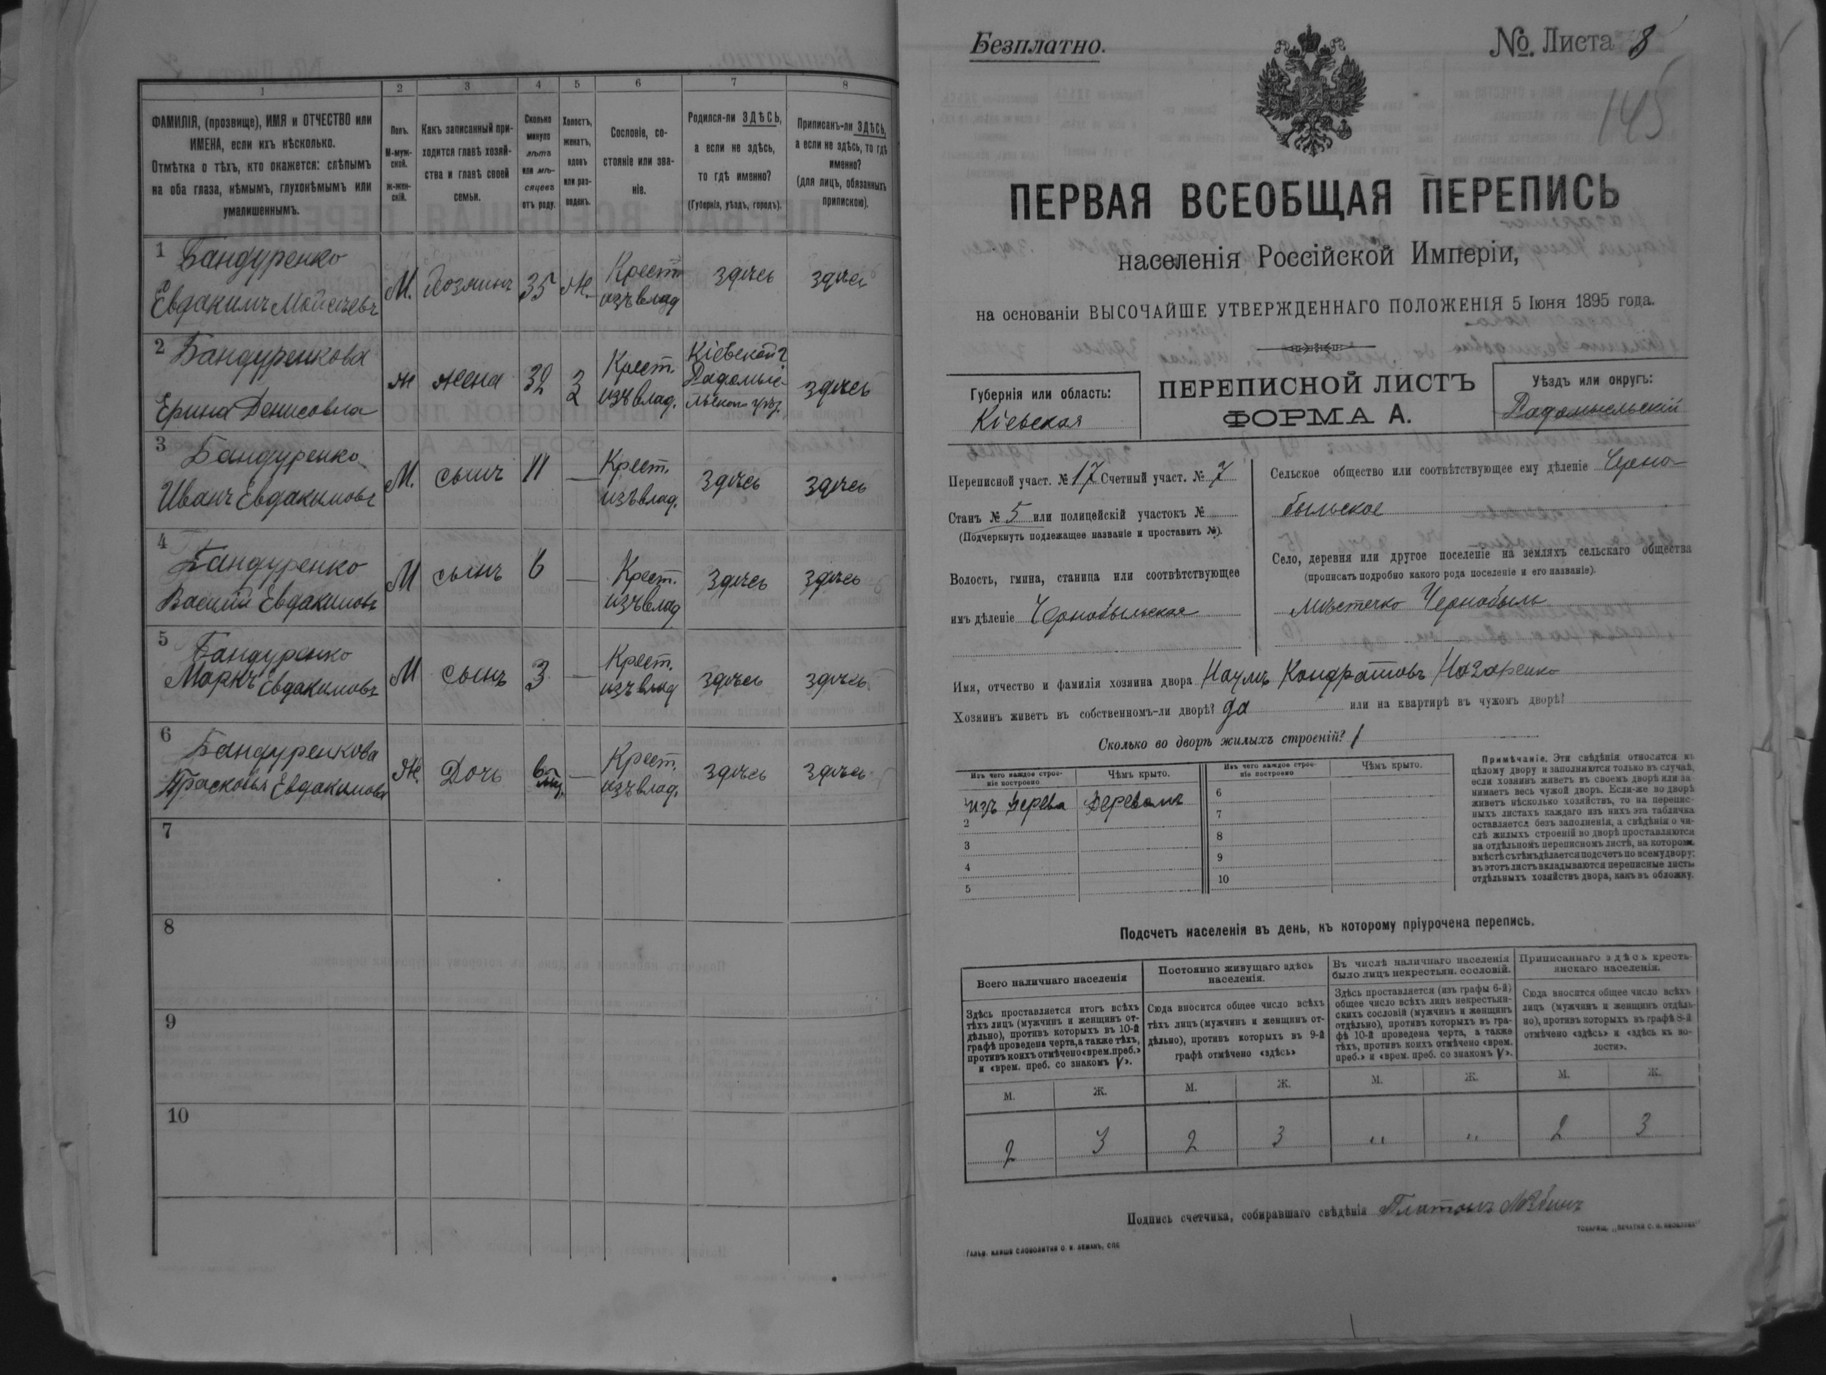 1 2 3 4 5 6 7 8
ФАМИЛІЯ, (прозвище), ИМЯ и ОТЧЕСТВО или
ИМЕНА, если ихъ нѣсколько.
Отмѣтка о тѣхъ, кто окажется: слѣпымъ
на оба глаза, нѣмымъ, глухонѣмымъ или
умалишеннымъ.
Полъ.
М-муж-
ской.
Ж-жен-
скій.
Какъ записанный при-
ходится главѣ хозяй-
ства и главѣ своей
семьи.
Сколько
минуло
лѣтъ
или мѣ-
сяцевъ
отъ роду.
Холостъ,
женатъ,
вдовъ
или раз-
веденъ.
Сословіе, со-
стояніе или зва-
ніе.
Родился-ли ЗДѢСЬ,
а если не здѣсь,
то гдѣ именно?
(Губернія, уѣздъ, городъ).
Приписанъ-ли ЗДѢСЬ,
а если не здѣсь, то гдѣ
именно?
(для лицъ, обязанныхъ
припискою).
1 Бандуренко
Евдакимъ Мойсѣевъ М. Хозяинъ 35 Ж. Крест. изъ влад здѣсь здѣсь
2 Бандуренкова
Ерина Денисовна ж жена 32 З Крест. изъ влад. Кіевской г. Радомыс-
льской уѣз. здѣсь
3 Бандуренко
Иванъ Евдакимовъ М. сынъ 11 — Крест. изъ влад. здѣсь здѣсь
4 Бандуренко
Василій Евдакимовъ М сынъ 6 — Крест. изъ влад здѣсь здѣсь
5 Бандуренко
Маркъ Евдакимовъ М сынъ 3 — Крест. изъ влад здѣсь здѣсь
6 Бандуренкова
Прасковья Евдакимова Ж. Дочь 6 — Крест. изъ влад. здѣсь здѣсь
7
8
9
10
Безплатно.
№ Листа 8
145
ПЕРВАЯ ВСЕОБЩАЯ ПЕРЕПИСЬ
населенія Россійской Имперіи,
на основаніи ВЫСОЧАЙШЕ УТВЕРЖДЕННАГО ПОЛОЖЕНІЯ 5 Іюня 1895 года.
Губернія или область:
Кіевская
ПЕРЕПИСНОЙ ЛИСТЪ
ФОРМА А.
Уѣздъ или округъ:
Радомысльскій
Переписной участ. № 17 Счетный участ. № 7
Станъ № 5 или полицейскій участокъ №
(Подчеркнуть подлежащее названіе и проставить №).
Волость, гмина, станица или соотвѣтствующее
имъ дѣленіе Чернобыльская
Сельское общество или соотвѣтствующее ему дѣленіе Черно-
быльское
Село, деревня или другое поселеніе на земляхъ сельскаго общества
(прописать подробно какого рода поселеніе и его названіе).
мѣстечко Чернобыль
Имя, отчество и фамилія хозяина двора Наумъ Кондратовъ Назаренко
Хозяинъ живетъ въ собственномъ-ли дворѣ? да или на квартирѣ въ чужомъ дворѣ?
Сколько во дворѣ жилыхъ строеній? 1
Изъ чего каждое строе-
ніе построено
Чѣмъ крыто.
Изъ чего каждое строе-
ніе построено
Чѣмъ крыто.
изъ дерева Деревомъ
2
3
4
5
6
7
8
9
10
Примѣчаніе. Эти свѣдѣнія относятся къ
цѣлому двору и заполняются только въ случаѣ,
если хозяинъ живетъ въ своемъ дворѣ или за-
нимаетъ весь чужой дворъ. Если-же во дворѣ
живетъ нѣсколько хозяйствъ, то на перепис-
ныхъ листахъ каждаго изъ нихъ эта табличка
оставляется безъ заполненія, а свѣдѣнія о чи-
слѣ жилыхъ строеній во дворѣ проставляются
на отдѣльномъ переписномъ листѣ, на которомъ
вмѣстѣ съ тѣмъ дѣлается подсчетъ по всему двору;
въ этотъ листъ вкладываются переписные листы
отдѣльныхъ хозяйствъ двора, какъ въ обложку.
Подсчетъ населенія въ день, къ которому пріурочена перепись.
Всего наличнаго населенія
Постоянно живущаго здѣсь
населенія.
Въ числѣ наличнаго населенія
было лицъ некрестьян. сословій.
Приписаннаго здѣсь кресть-
янскаго населенія.
Здѣсь проставляется итогъ всѣхъ
тѣхъ лицъ (мужчинъ и женщинъ от-
дѣльно), противъ которыхъ въ 10-й
графѣ проведена черта, а также тѣхъ,
противъ коихъ отмѣчено «врем. преб.»
и «врем. преб. со знакомъ V».
Сюда вносится общее число всѣхъ
тѣхъ лицъ (мужчинъ и женщинъ от-
дѣльно), противъ которыхъ въ 9-й
графѣ отмѣчено «здѣсь»
Здѣсь проставляется (изъ графы 6-й)
общее число всѣхъ лицъ некрестьян-
скихъ сословій (мужчинъ и женщинъ
отдѣльно), противъ которыхъ въ гра-
фѣ 10-й проведена черта, а также
тѣхъ, противъ коихъ отмѣчено «врем.
преб.» и «врем. преб. со знакомъ V».
Сюда вносится общее число всѣхъ
лицъ (мужчинъ и женщинъ отдѣль-
но), противъ которыхъ въ графѣ 8-й
отмѣчено «здѣсь» и «здѣсь въ во-
лости».
М. Ж. М. Ж. М. Ж. М. Ж.
2 3 2 3 " " 2 3
Подпись счетчика, собиравшаго свѣдѣнія Платонъ